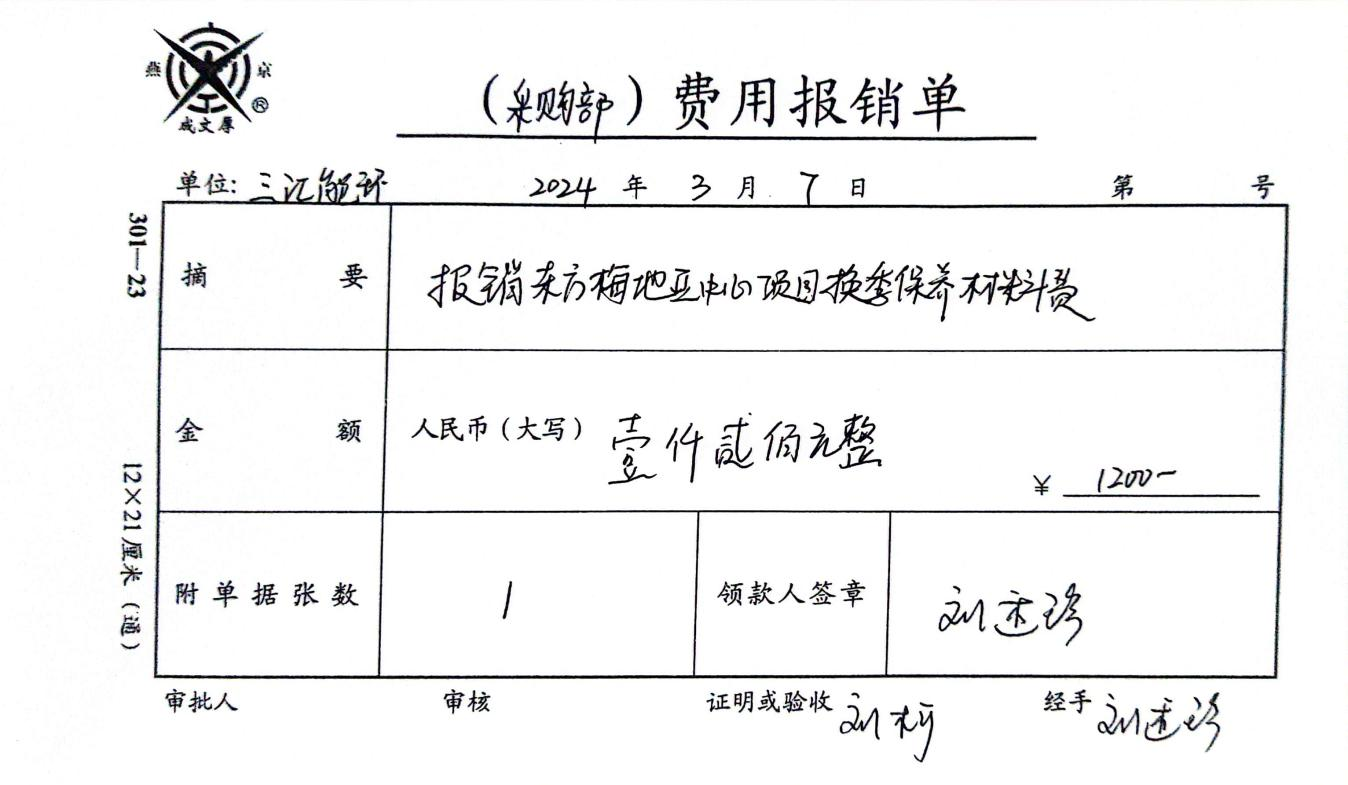 燕 京
®
成文厚
(采购部)费用报销单
单位: 三汇能环 2024 年 3 月 7 日 第 号
301—23
摘 要 报销东方梅地亚中心项目换季保养材料费
金 额 人民币(大写) 壹仟贰佰元整
¥ 1200-
12×21厘米(通)
附单据张数 1 领款人签章 刘
审批人 审核 证明或验收 刘 经手 刘